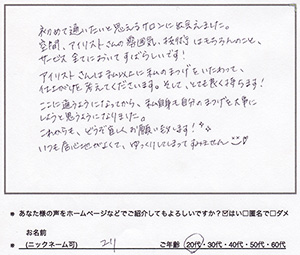 初めて通いたいと思えるサロンに出会えました。
空間、アイリストさんの雰囲気、技術はもちろんのこと、
サービス全てにおいてすばらしいです!
アイリストさんは私以上に私のまつげをいたわって、
仕上げを考えてくださいます。そして、とても長く持ちます!
ここに通うようになってから、私自身も自分のまつげを大事に
しようと思うようになりました。
これからも、どうぞ宜しくお願い致します!
いつも居心地がよくて、ゆっくりしてしまってすみません
* あなた様の声をホームページなどでご紹介してもよろしいですか?☑はい□匿名で□ダメ
お名前
* (ニックネーム可) ユリ ご年齢 20代・30代・40代・50代・60代